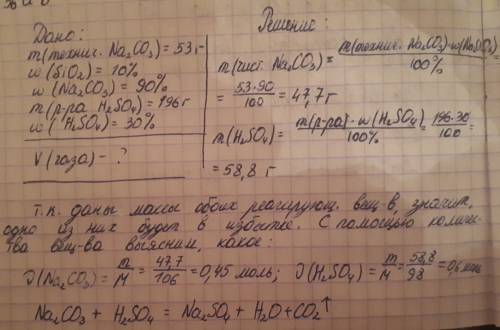 Дано:
m(технич. Na₂CO₃) = 53 г
w(SiO₂) = 10%
w(Na₂CO₃) = 90%
m(р-ра H₂SO₄) = 196 г
w(H₂SO₄) = 30%
V(газа) - ?
Решение:
m(чист. Na₂CO₃) = m(технич. Na₂CO₃)·w(Na₂CO₃) / 100% =
= 53·90 / 100 = 47,7 г
m(H₂SO₄) = m(р-ра)·w(H₂SO₄) / 100% = 196·30 / 100 =
= 58,8 г
т.к. даны массы обоих реагирующ. вещ-в, значит,
одно из них будет в избытке. С помощью количес-
тва вещ-ва выясним, какое:
J(Na₂CO₃) = m/M = 47,7/106 = 0,45 моль; J(H₂SO₄) = m/M = 58,8/98 = 0,6 моль
Na₂CO₃ + H₂SO₄ = Na₂SO₄ + H₂O + CO₂↑